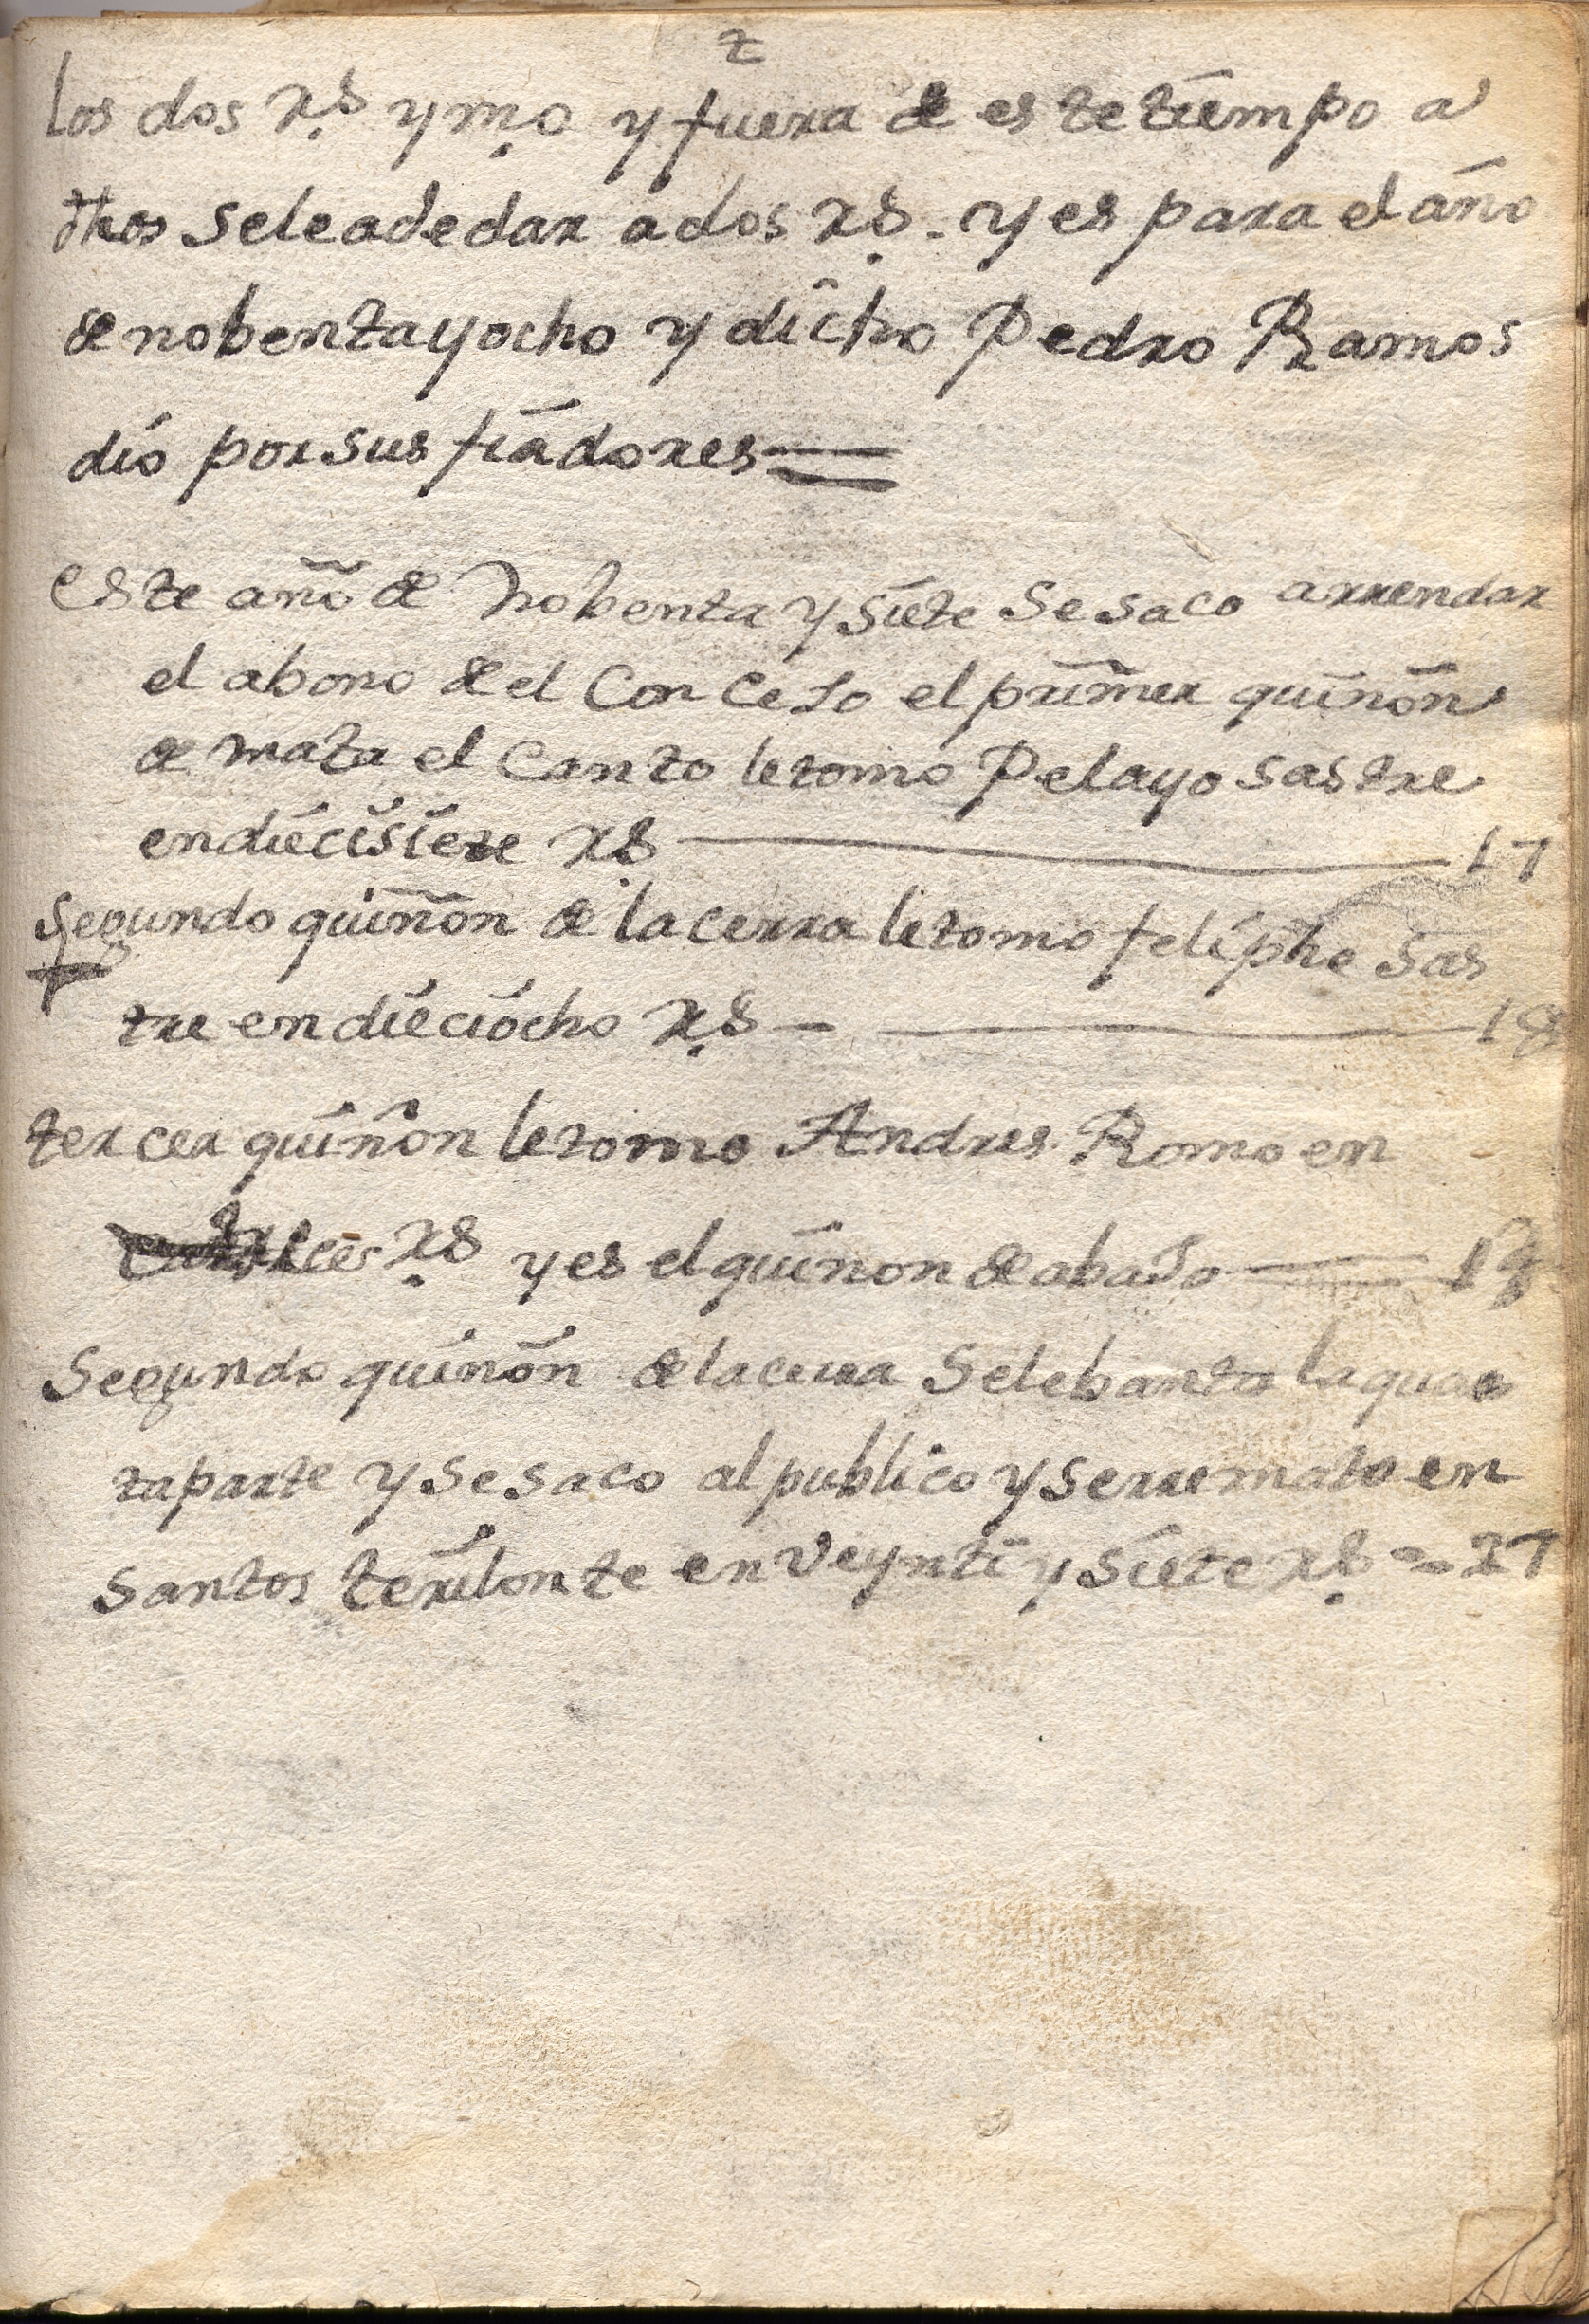 2
los dos Rs y mo y fuera de este tiempo a
dhos seleadedar a dos Rs. y es para el año
de nobenta y ocho y dicho Pedro Ramos
dio por sus fiadores =
este año de nobenta y siete se saco arrendar
el abono de el Concejo el primer quiñon
de mata el canto le tomo Pelayo sastre
en diecisiete Rs — 17
Segundo quiñon de la cerra le tomo feliphe Sas
tre en dieciocho Rs — 18
tercer quiñon le tomo Andres Romo en
Rs y es el quiñon de abajo —
Segundo quiñon de la cerra se lebanto la quar
ta parte y se saco al publico y se rremato en
Santos en veynti y siete Rs = 27